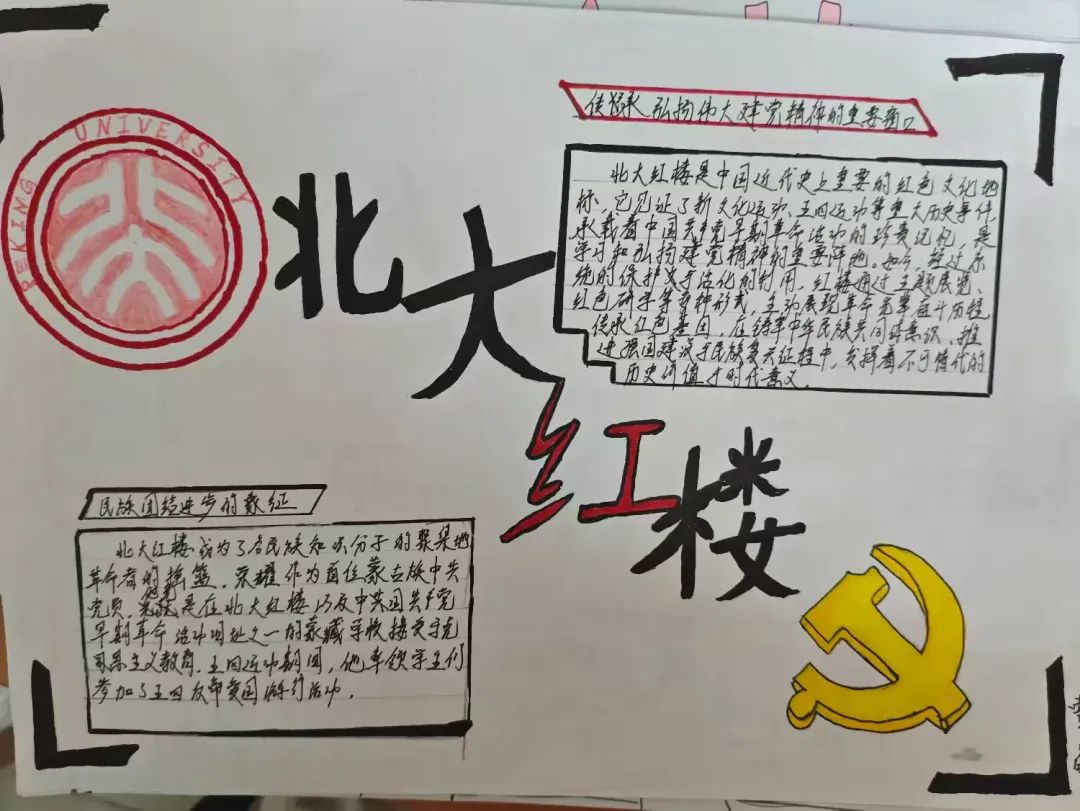 PEKING UNIVERSITY
北大红楼
传承弘扬伟大建党精神的重要窗口
北大红楼是中国近代史上重要的红色文化地
标,它见证了新文化运动、五四运动等重大历史事件,
承载着中国共产党早期革命活动的珍贵记忆,是
学习和弘扬建党精神的重要阵地。如今,经过系
统的保护与活化的利用,红楼通过主题展览、
红色研学等多种形式,生动展现革命先辈奋斗历程
传承红色基因,在铸牢中华民族共同体意识、推
进强国建设与民族复兴征程中,发挥着不可替代的
历史价值与时代意义。
民族团结进步的象征
北大红楼成为了各民族知识分子的聚集地
革命者的摇篮,荣耀作为首位蒙古族中共
党员,是在北大红楼以及中共国共产党
早期革命活动旧址之一的蒙藏学校接受马克
思主义教育。五四运动期间,他率领学生们
参加了五四反帝爱国游行活动。